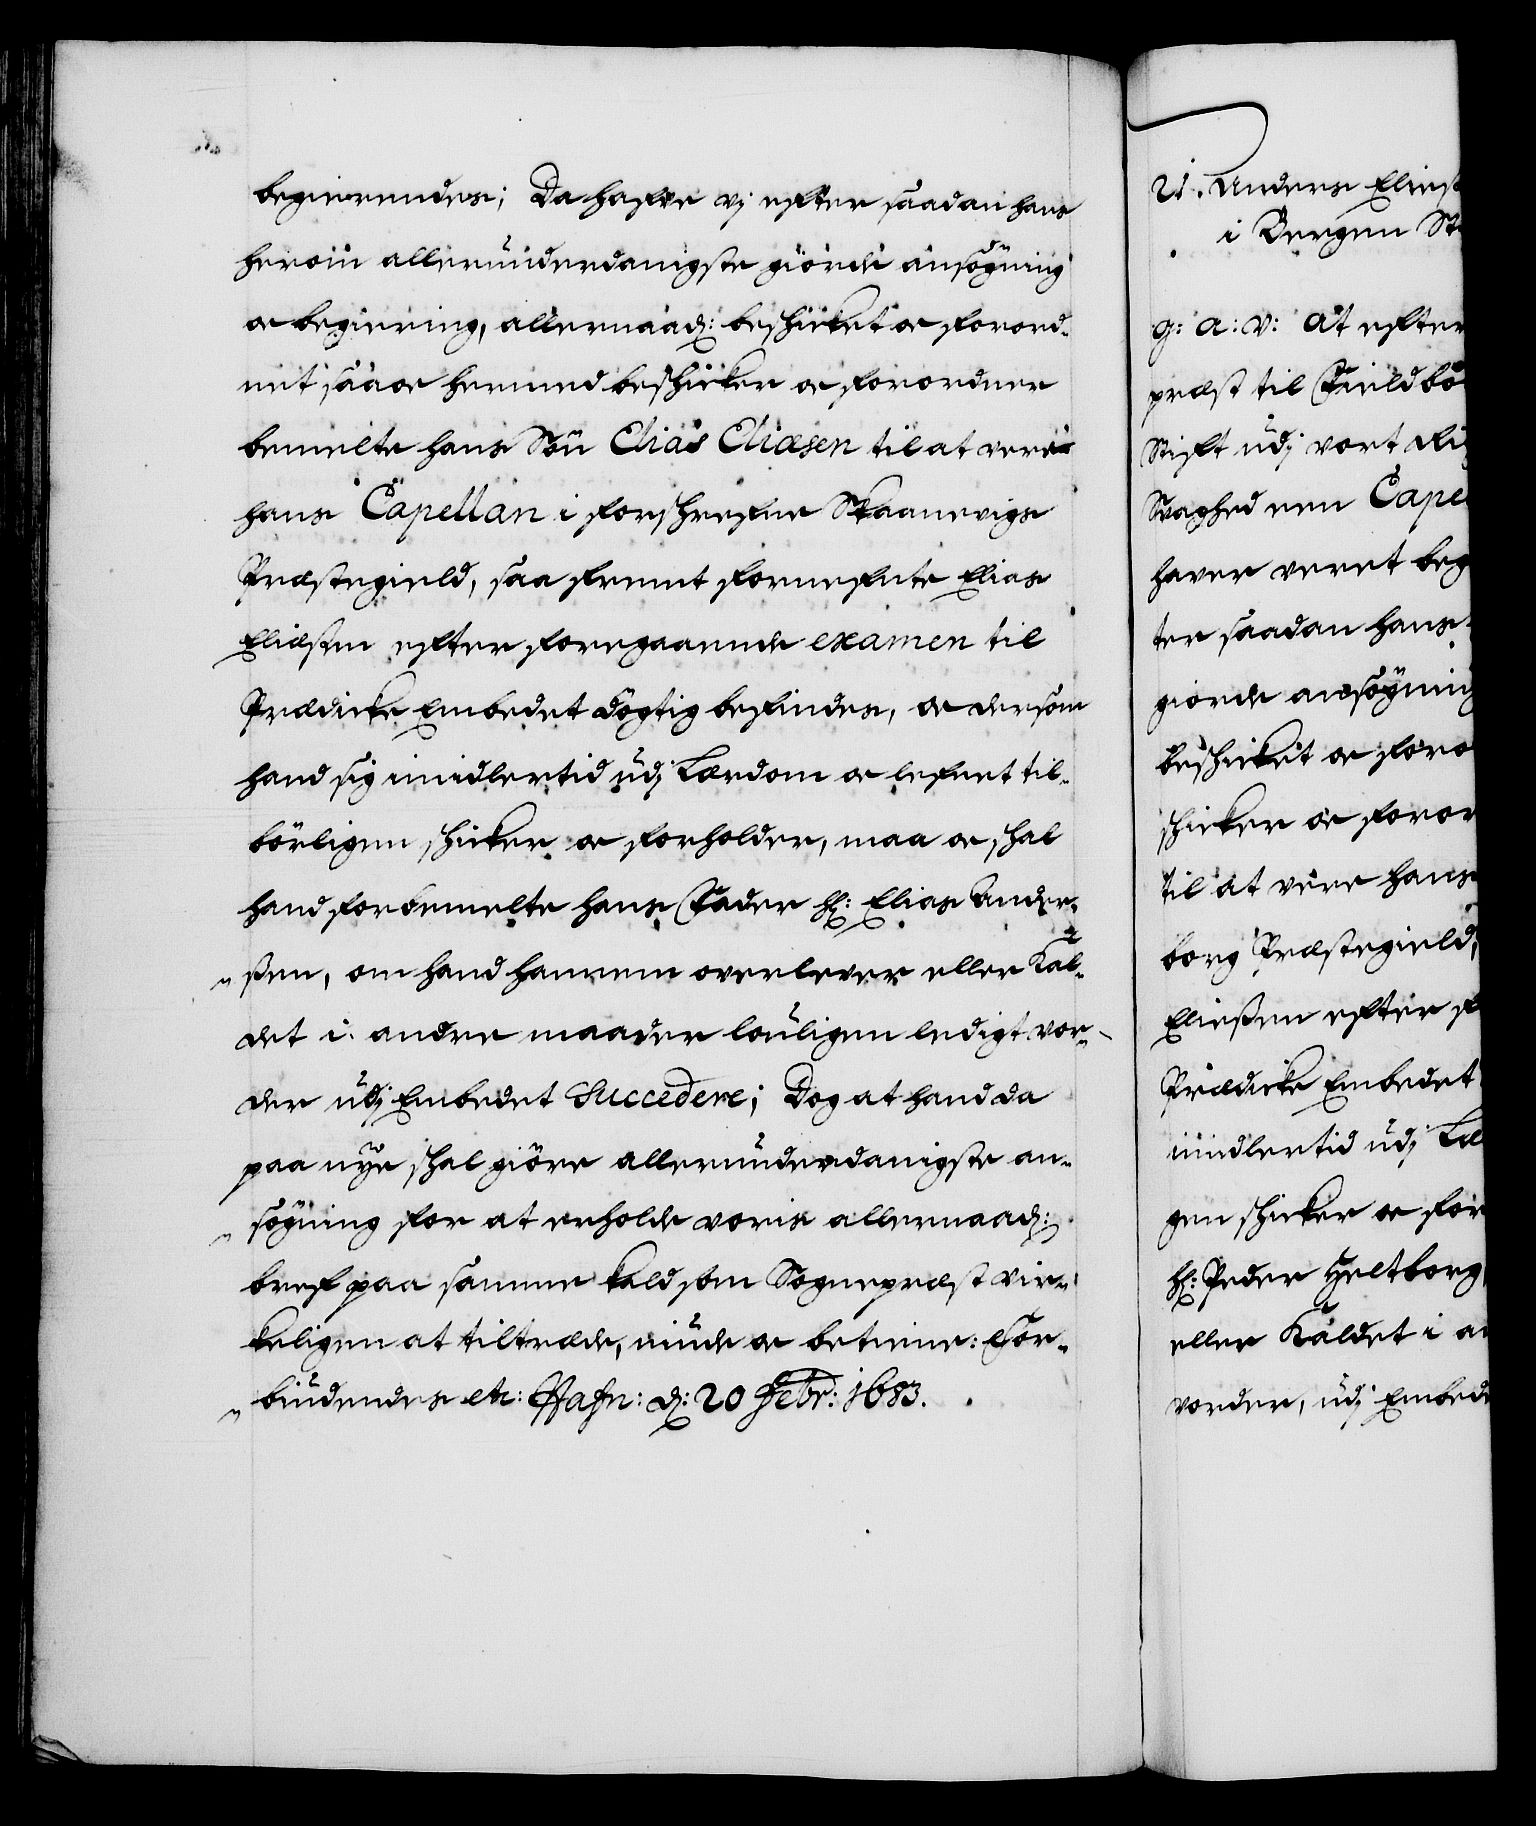 begierendes; Da hafve vj efter saadan hans
herom allerunderdanigste giorde ansögning
oc begiering, allernaad: beschicket oc forord-
net saa oc hermed beschicker oc forordner
bemelte hans Sön Elias Eliæsen til at vere
hans Capellan i forschrefne Skaanevigs
Præstegield, saa fremt fornefnte Elias
Eliæsen efter foregaaende examen til
Prædicke Embedet dögtig befindes, oc dersom
hand sig imidlertid udj Lærdom oc lefnet til-
börligen schicker oc forholder, maa oc schal
hand forbemelte hans Fader Hr: Elias Ander-
sen, om hand hannem overlever eller Kal-
det i andre maader louligen ledigt vor-
der udj Embedet Succedere; Dog at hand da
paa nye schal giöre allerunderdanigste an-
sögning for at erholde voris allernaad:
bref paa samme kald som Sognepræst vir-
keligen at tiltræde, niude oc betiene: For-
biudendes etc: Hafn: d: 20 Febr: 1683.
U. Anders Elies
i Bergen St
G: A: V: At efter
præst til Fieldbo
Stift udj vort Ri
Svaghed een Cape
haver veret beg
ter saadan hans
giorde ansögning
beschicket oc foro
schicker oc foror
til at vere hans
borg Præstegield,
Eliesen efter f
Prædicke Embedet
imidlertid udj Læ
gen schicker oc for
Hr: Peder Heltborg
eller Kaldet i a
vorder, udj Embede